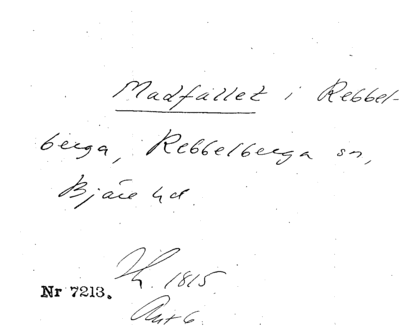 Madfallet i Rebbel-
berga, Rebbelberga sn,
Bjäre hd.
1815.
Nr 7213.
Akt 6.